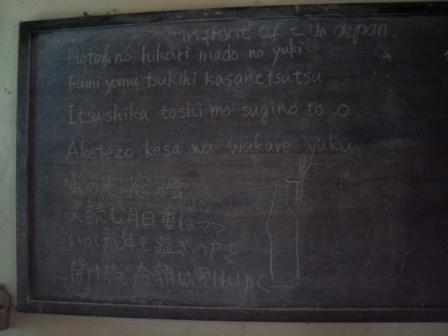 infront of
Hotaru no hikari mado no yuki
Fumi yomu tsukihi kasanetsutsu
Itsushika toshi mo sugino to o
Aketezo kesa wa wakare yuku
蛍の光 窓の雪
文読む月日重ねつつ
いつしか年も過ぎの戸を
開けてぞ今朝は別けゆく